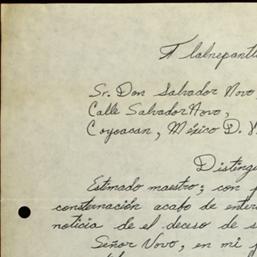 Tlalnepantl
Sr. Don Salvador Novo
Calle Salvador Novo,
Coyoacan, México D.
Disting
Estimado maestro; con
consternación acabo de enter
noticia de el deceso de s
Señor Novo, en mi